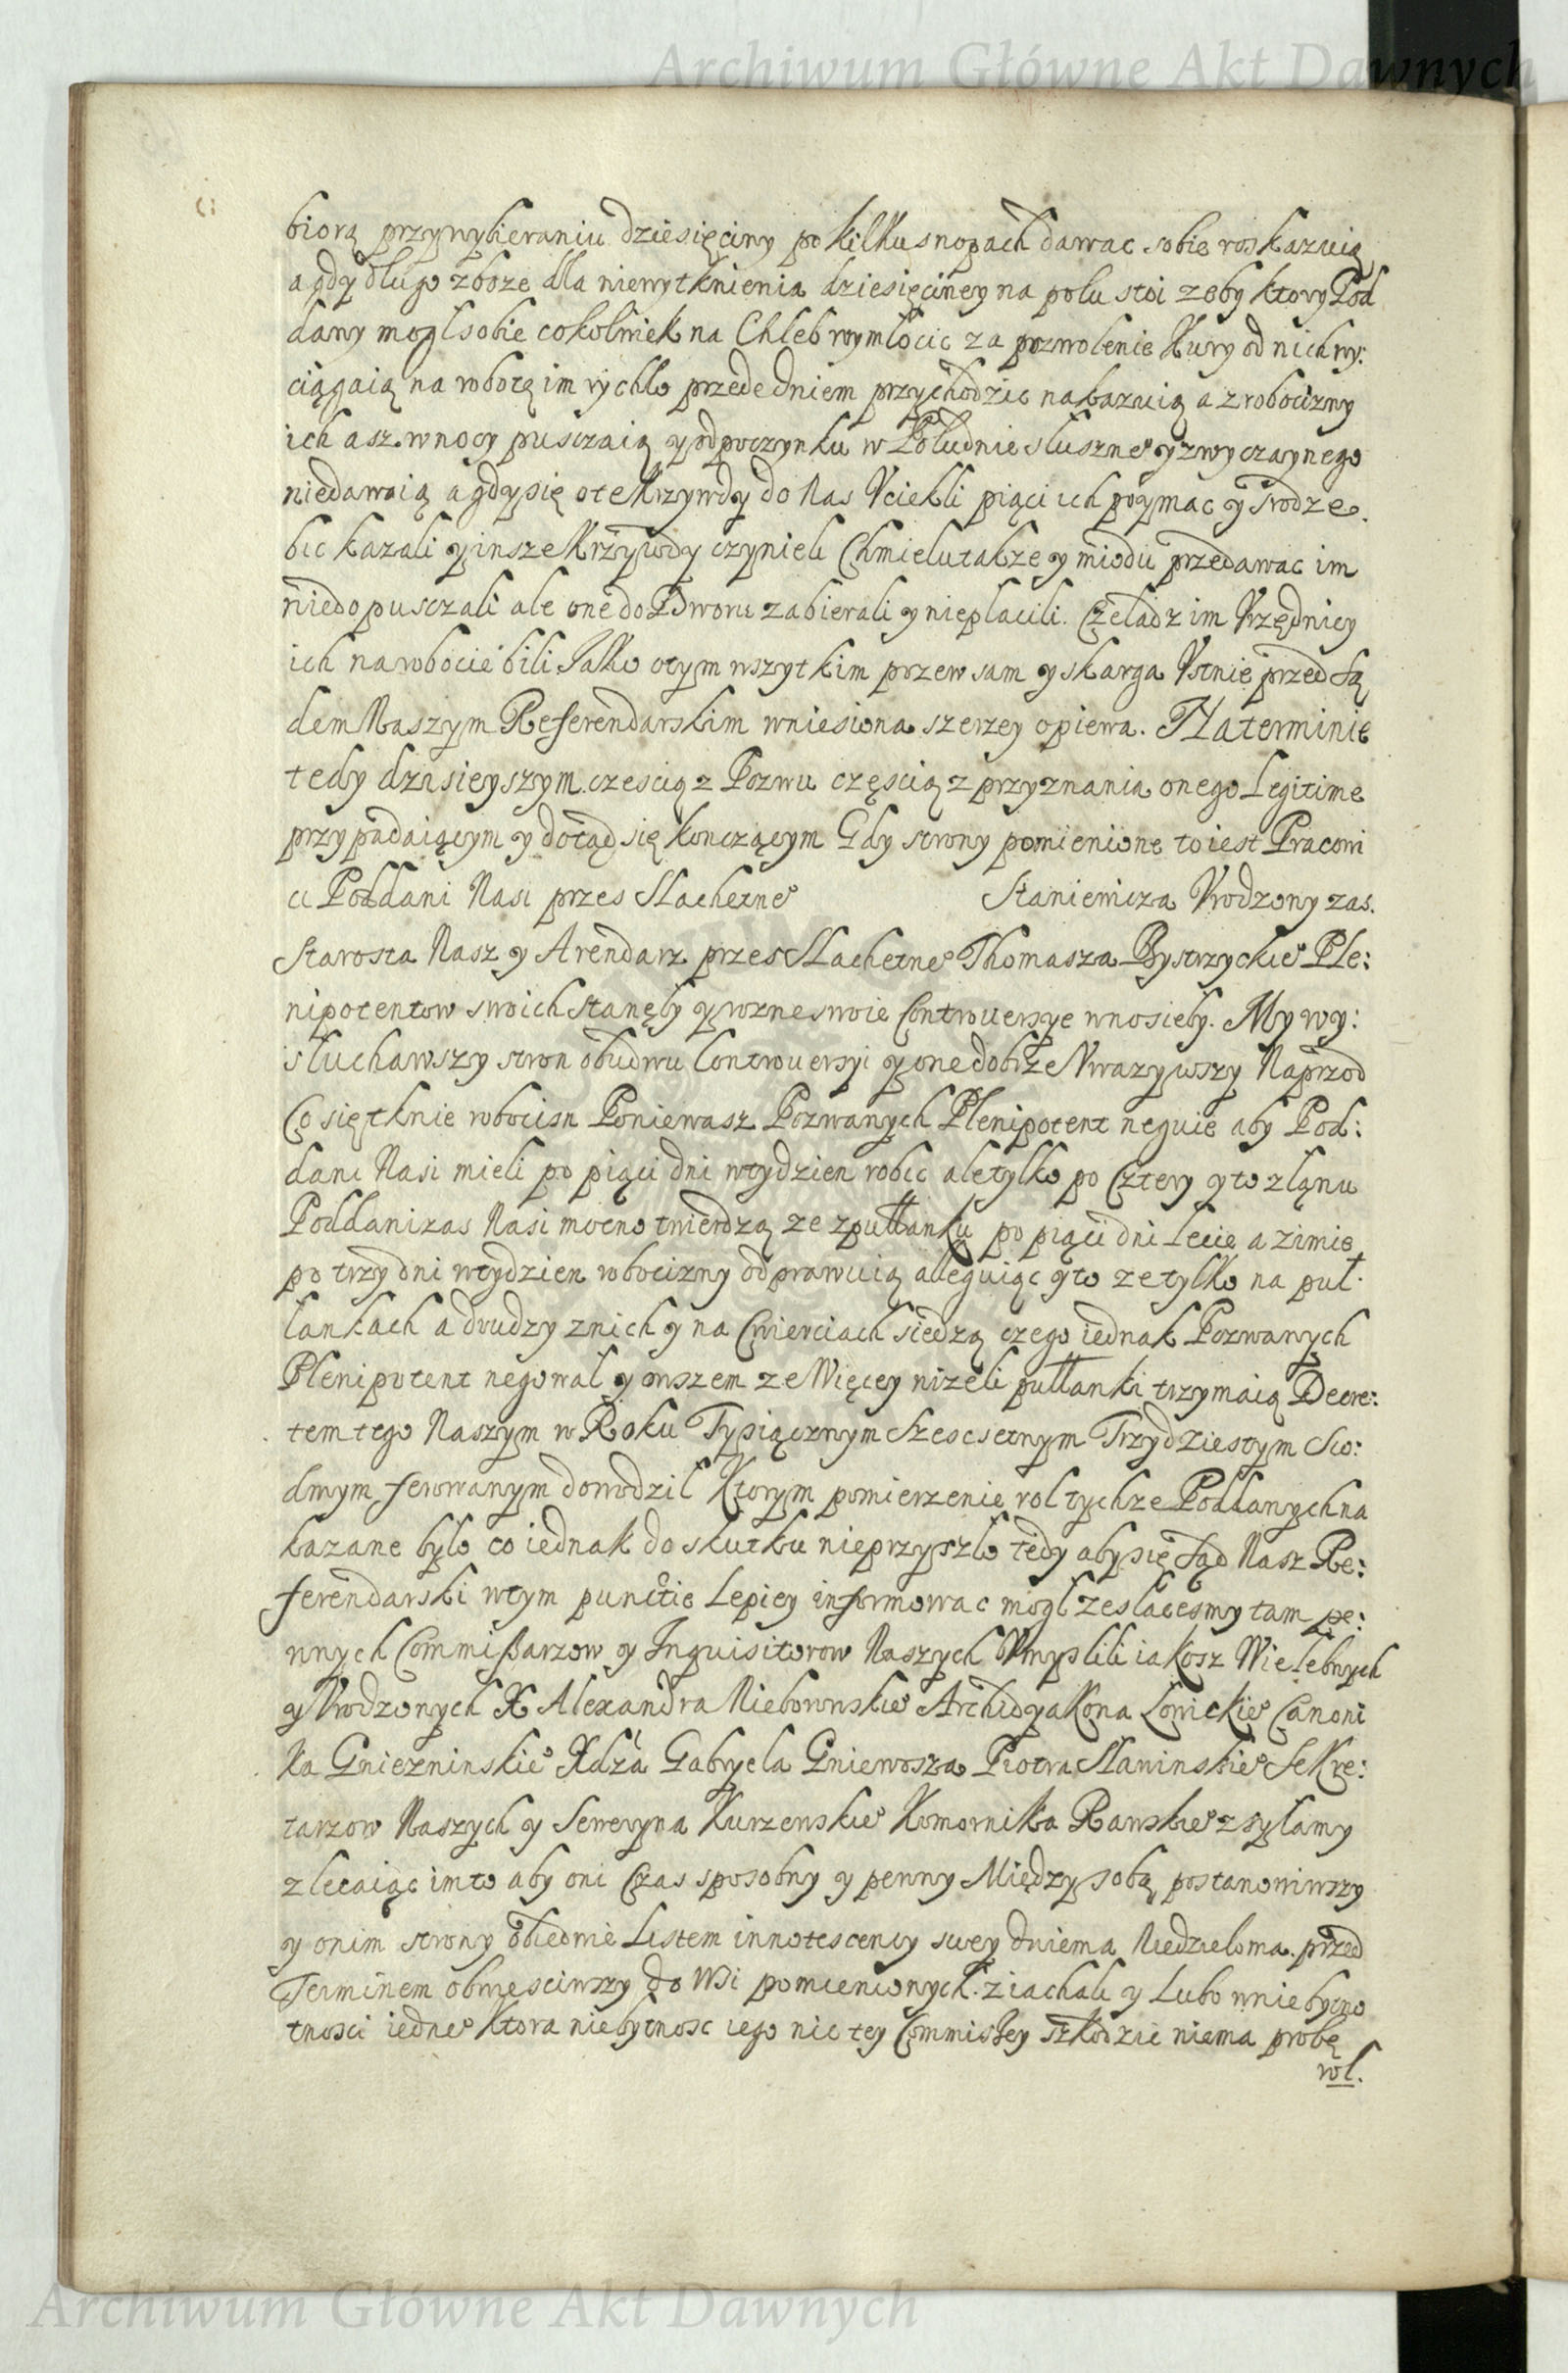 Archiwum Główne Akt Dawnych
biorą przywybieraniu dziesięciny po kilku snopach dawac sobie roskazuią
a gdy długo zboze dla niewytknienia dziesięciney na polu stoi zeby ktory Pod
dany mogł sobie cokolwiek na Chleb wymłocic za pozwolenie Kury od nich wy:
ciągaią na robotą im rychło przede dniem przychodzic nakazuią a z robocizny
ich asz w nocy pusczaią y odpoczynku w Południe słuszneº y zwyczaynego
niedawaią a gdy się o te Krzywdy do Nas Vciekli piąci ich poymac y srodze
bic kazali y insze Krzywdy czynieli Chmielu takze y miodu przedawac im
niedopusczali ale one do Dworu zabierali y niepłacili. Czeladz im Vrzędnicy
ich na robocie bili Jako o tym wszytkim pozew sam y skarga Vstnie przed Są
dem Naszym Referendarskim wniesiona szerzey opiewa. Na terminie
tedy dzisieyszym czescią z Pozwu częscią z przyznania onego Legitime
przypadaiącym y dotąd się konczącym Gdy strony pomienione to iest Pracowi
ci Poddani Nasi przes Slachetneº Staniewicza Vrodzony zas.
Starosta Nasz y Arendarz przes Slachetneº Thomasza Bystrzyckieº Ple:
nipotentow swoich stanęły y rozne swoie Controuersye wnosieły. My wy:
słuchawszy stron obudwu Controuersyi y one dobrze Vwazywszy Naprzod
Co się tknie robocisn Poniewasz Pozwanych Plenipotent neguie aby Pod:
dani Nasi mieli po piąci dni w tydzien robic ale tylko po Cztery y to z łąnu
Poddani zas Nasi mocno twierdzą ze z pułłanku po piąci dni lecie a zimie
po trzy dni w tydzien robocizny odprawuią alleguiąc y to ze tylko na puł.
łankach a drudzy z nich y na Cwierciach siedzą czego iednak Pozwanych
Plenipotent negował y owszem ze Więcey nizeli pułłanki trzymaią Decre:
tem tego Naszym w Roku Tysiącznym Szescsetnym Trzydziestym Sio:
dmym ferowanym dowodził Ktorym pomierzenie rol tychze Poddanych na
kazane było co iednak do skutku nieprzyszło tedy aby się Sąd Nasz Re:
ferendarski w tym punctie Lepiey informowac mogł zesłacesmy tam pe:
wnych Commissarzow y Inquisitorow Naszych Vmyslili iakosz Wielebnych
y Vrodzonych X Alexandra Nieborowskieº Archidyakona Łowickieº Canoni
ka Gnieznińskieº Xdza Gabryela Gniewosza Piotra Sławinskieº Sekre:
tarzow Naszych y Seweryna Kurzewskieº Komornika Rawskieº zsyłamy
zlecaiąc im to aby oni Czas sposobny y pewny Między sobą postanowiwszy
y o nim strony obiedwie Listem innotescency swey dwiema Niedzieloma przed
Terminem obwiesciwszy do Wsi pomienionych ziachali y Lubo w niebytno
tnosci iedneº Ktora niebytnosc iego nic tey Commissiey szkodzic niema probę
rol.
Archiwum Główne Akt Dawnych